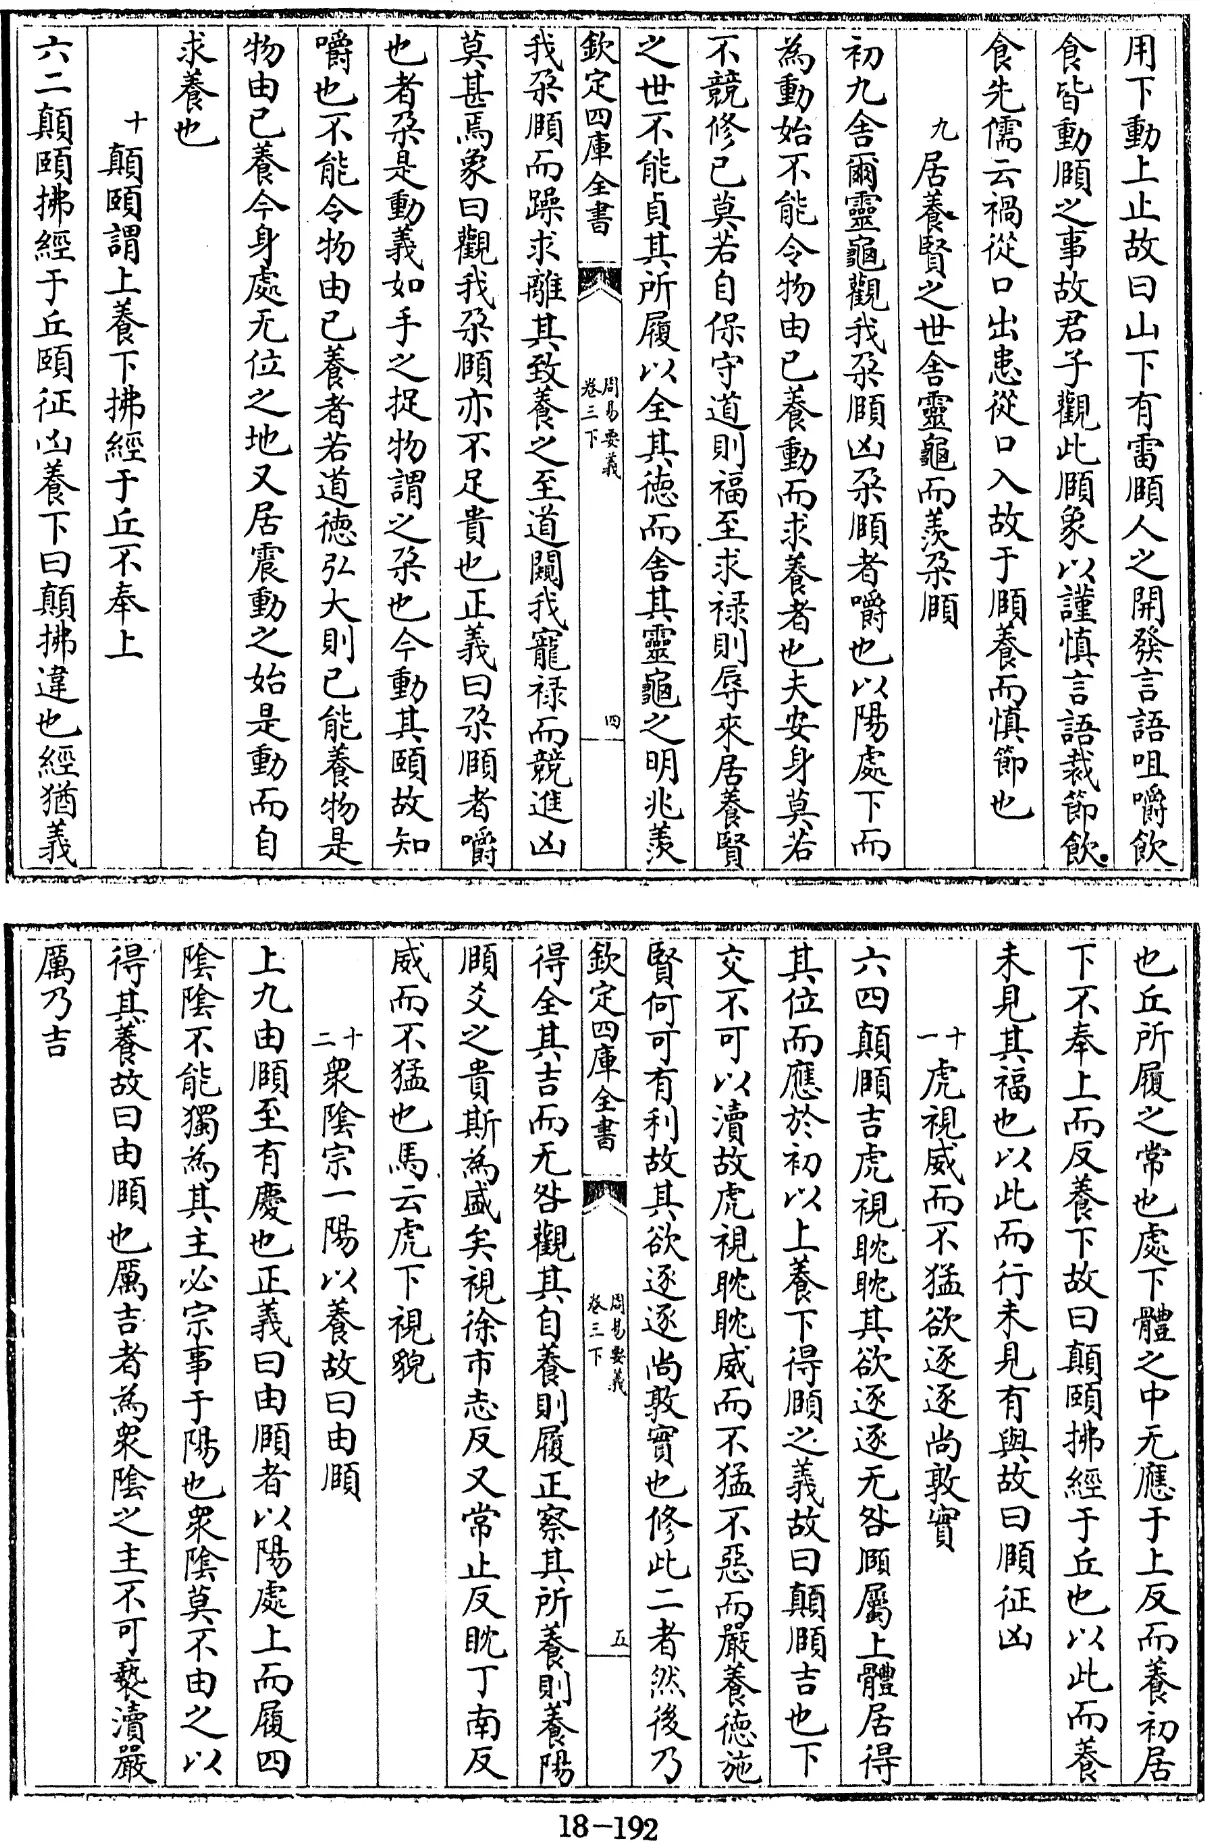 用下動上止故曰山下有雷頤人之開發言語咀嚼飲
食皆動頤之事故君子觀此頤象以謹慎言語裁節飲
食先儒云禍從口出患從口入故于頤養而慎節也
九居養賢之世舍靈龜而羡朶頤
初九舍爾靈龜觀我朶頤凶朶頤者嚼也以陽處下而
為動始不能令物由已養動而求養者也夫安身莫若
不競修已莫若自保守道則福至求禄則辱來居養賢
之世不能貞其所履以全其徳而舍其靈龜之明兆羡
欽定四庫全書
周易要義
卷三下
四
我朶頤而躁求離其致養之至道闚我寵禄而競進凶
莫甚焉象曰觀我朶頤亦不足貴也正義曰朶頤者嚼
也者朶是動義如手之捉物謂之朶也今動其頤故知
嚼也不能令物由已養者若道徳弘大則已能養物是
物由已養今身處无位之地又居震動之始是動而自
求養也
十顛頤謂上養下拂經于丘不奉上
六二顛頤拂經于丘頤征凶養下曰顛拂違也經猶義
也丘所履之常也處下體之中无應于上反而養初居
下不奉上而反養下故曰顛頤拂經于丘也以此而養
未見其福也以此而行未見有與故曰頤征凶
十一虎視威而不猛欲逐逐尚敦實
六四顛頤吉虎視眈眈其欲逐逐无咎頤屬上體居得
其位而應於初以上養下得頤之義故曰顛頤吉也下
交不可以瀆故虎視眈眈威而不猛不惡而嚴養徳施
賢何可有利故其欲逐逐尚敦實也修此二者然後乃
欽定四庫全書
周易要義
卷三下
五
得全其吉而无咎觀其自養則履正察其所養則養陽
頤爻之貴斯為盛矣視徐市志反又常止反眈丁南反
威而不猛也馬云虎下視貌
十二衆陰宗一陽以養故曰由頤
上九由頤至有慶也正義曰由頤者以陽處上而履四
陰陰不能獨為其主必宗事于陽也衆陰莫不由之以
得其養故曰由頤也厲吉者為衆陰之主不可褻瀆嚴
厲乃吉
18-192